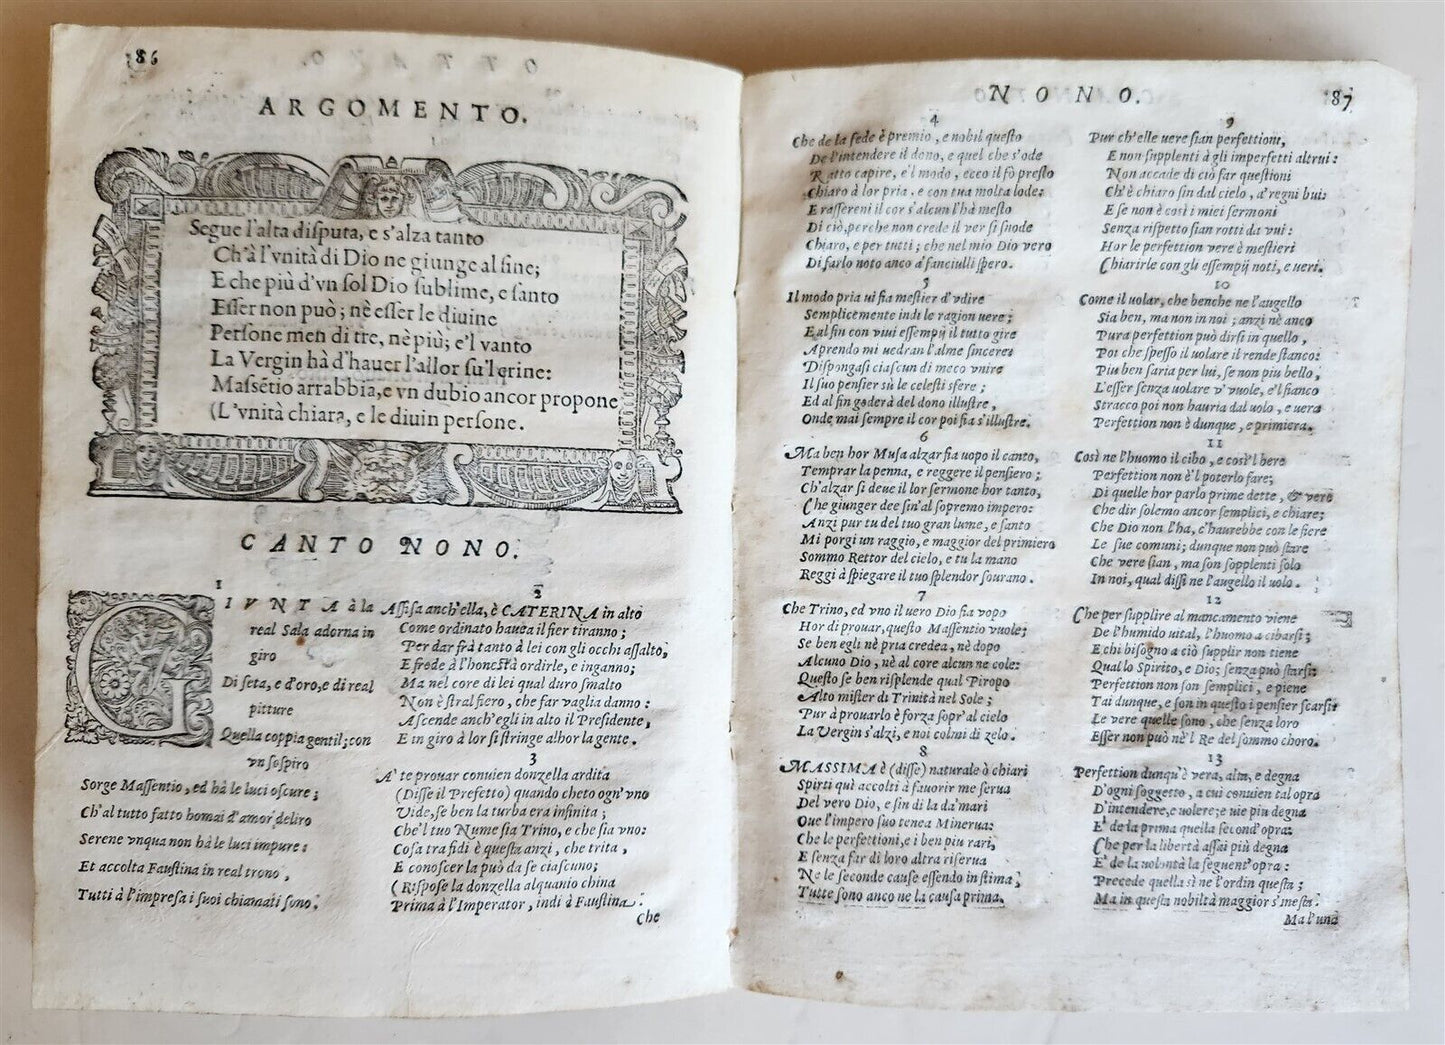 86
ARGOMENTO.
Segue l'alta disputa, e s'alza tanto
Ch'à l'vnità di Dio ne giunge al fine;
E che più d'vn sol Dio sublime, e santo
Esser non può; nè esser le diuine
Persone men di tre, nè più; e'l vanto
La Vergin hà d'hauer l'allor su'l crine:
Massẽtio arrabbia, e vn dubio ancor propone
(L'vnità chiara, e le diuin persone.
CANTO NONO.
1
GIVNTA à la
real Sala adorna in
giro
Di seta, e d'oro, e di real
pitture
Quella coppia gentil; con
vn sospiro
Sorge Massentio, ed hà le luci oscure;
Ch'al tutto fatto homai d'amor deliro
Serene vnqua non hà le luci impure:
Et accolta Faustina in real trono,
Tutti à l'impresa i suoi chiamati sono.
2
Assisa anch'ella, è CATERINA in alto
Come ordinato hauea il fier tiranno;
Per dar frà tanto à lei con gli occhi assalto,
E frode à l'honestà ordirle, e inganno;
Ma nel core di lei qual duro smalto
Non è stral fiero, che far vaglia danno:
Ascende anch'egli in alto il Presidente,
E in giro à lor si stringe alhor la gente.
3
A' te prouar conuien donzella ardita
(Disse il Prefetto) quando cheto ogn'vno
Vide, se ben la turba era infinita;
Che'l tuo Nume sia Trino, e che sia vno:
Cosa tra fidi è questa anzi, che trita,
E conoscer la può da se ciascuno;
(Rispose la donzella alquanto china
Prima à l'Imperator, indi à Faustina.
Che
NONO.
87
4
Che de la fede è premio, e nobil questo
De l'intendere il dono, e quel che s'ode
Ratto capire, e'l modo, ecco il fò presto
Chiaro à lor pria, e con tua molta lode:
E rassereni il cor s'alcun l'hà mesto
Di ciò, perche non crede il ver si snode
Chiaro, e per tutti; che nel mio Dio vero
Di farlo noto anco à fanciulli spero.
5
Il modo pria ui fia mestier d'vdire
Semplicemente indi le ragion uere;
E al fin con viui essempij il tutto gire
Aprendo mi uedran l'alme sincere:
Dispongasi ciascun di meco vnire
Il suo pensier sù le celesti sfere;
Ed al fin goderà del dono illustre,
Onde mai sempre il cor poi fia s'illustre.
6
Ma ben hor Musa alzar fia uopo il canto,
Temprar la penna, e reggere il pensiero;
Ch'alzar si deue il lor sermone hor tanto,
Che giunger dee sin'al sopremo impero:
Anzi pur tu del tuo gran lume, e santo
Mi porgi un raggio, e maggior del primiero
Sommo Rettor del cielo, e tu la mano
Reggi à spiegare il tuo splendor sourano.
7
Che Trino, ed vno il uero Dio sia vopo
Hor di prouar, questo Massentio vuole;
Se ben egli nè pria credea, nè dopo
Alcuno Dio, nè al core alcun ne cole:
Questo se ben risplende qual Piropo
Alto mister di Trinità nel Sole;
Pur à prouarlo è forza sopr'al cielo
La Vergin s'alzi, e noi colmi di zelo.
8
MASSIMA è (disse) naturale ò chiari
Spirti quì accolti à fauorir me serua
Del vero Dio, e sin di la da'mari
Oue l'impero suo tenea Minerua:
Che le perfettioni, e i ben piu rari,
E senza far di loro altra riserua
Ne le seconde cause essendo in stima,
Tutte sono anco ne la causa prima.
9
Pur ch'elle uere sian perfettioni,
E non supplenti à gli imperfetti altrui:
Non accade di ciò far questioni
Ch'è chiaro sin dal cielo, a' regni bui:
E se non è così i miei sermoni
Senza rispetto sian rotti da vui:
Hor le perfettion vere è mestieri
Chiarirle con gli essempij noti, e ueri.
10
Come il uolar, che benche ne l'augello
Sia ben, ma non in noi; anzi nè anco
Pura perfettion può dirsi in quello,
Poi che spesso il uolare il rende stanco:
Piu ben saria per lui, se non piu bello,
L'esser senza uolare v' vuole, e'l fianco
Stracco poi non hauria dal uolo, e uera
Perfettion non è dunque, e primiera.
11
Così ne l'huomo il cibo, e così'l bere
Perfettion non è'l poterlo fare;
Di quelle hor parlo prime dette, & vere
Che dir solemo ancor semplici, e chiare;
Che Dio non l'ha, c'haurebbe con le fiere
Le sue comuni; dunque non può stare
Che vere sian, ma son sopplenti solo
In noi, qual dissi ne l'augello il uolo.
12
Che per supplire al mancamento viene
De l'humido uital, l'huomo a cibarsi;
E chi bisogno a ciò supplir non tiene
Qual lo Spirito, e Dio; senza può starsi:
Perfettion non son semplici, e piene
Tai dunque, e son in questo i pensier scarsi
Le vere quelle sono, che senza loro
Esser non può nè'l Re del sommo choro.
13
Perfettion dunqu'è vera, alta, e degna
D'ogni soggetto, a cui conuien tal opra
D'intendere, e uolere; e uie piu degna
E' de la prima quella second'opra:
Che per la libertà assai più degna
E' de la uolontà la seguent'opra:
Precede quella sì ne l'ordin questa;
Ma in questa nobiltà maggior s'inesta.
Ma l'una